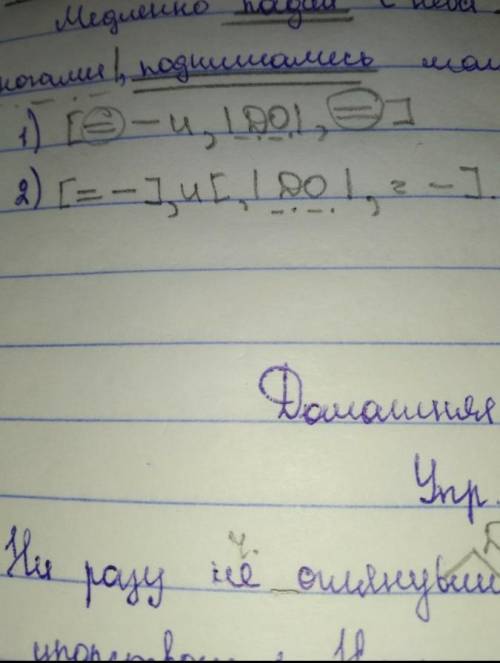 Медленно падал с неба
ногами, поднимались
1) [= – и, |ДО|, =]
2) [= –], и [, |ДО|, = –].
Домашняя
Упр.
ч.
Ни разу не оглянувши